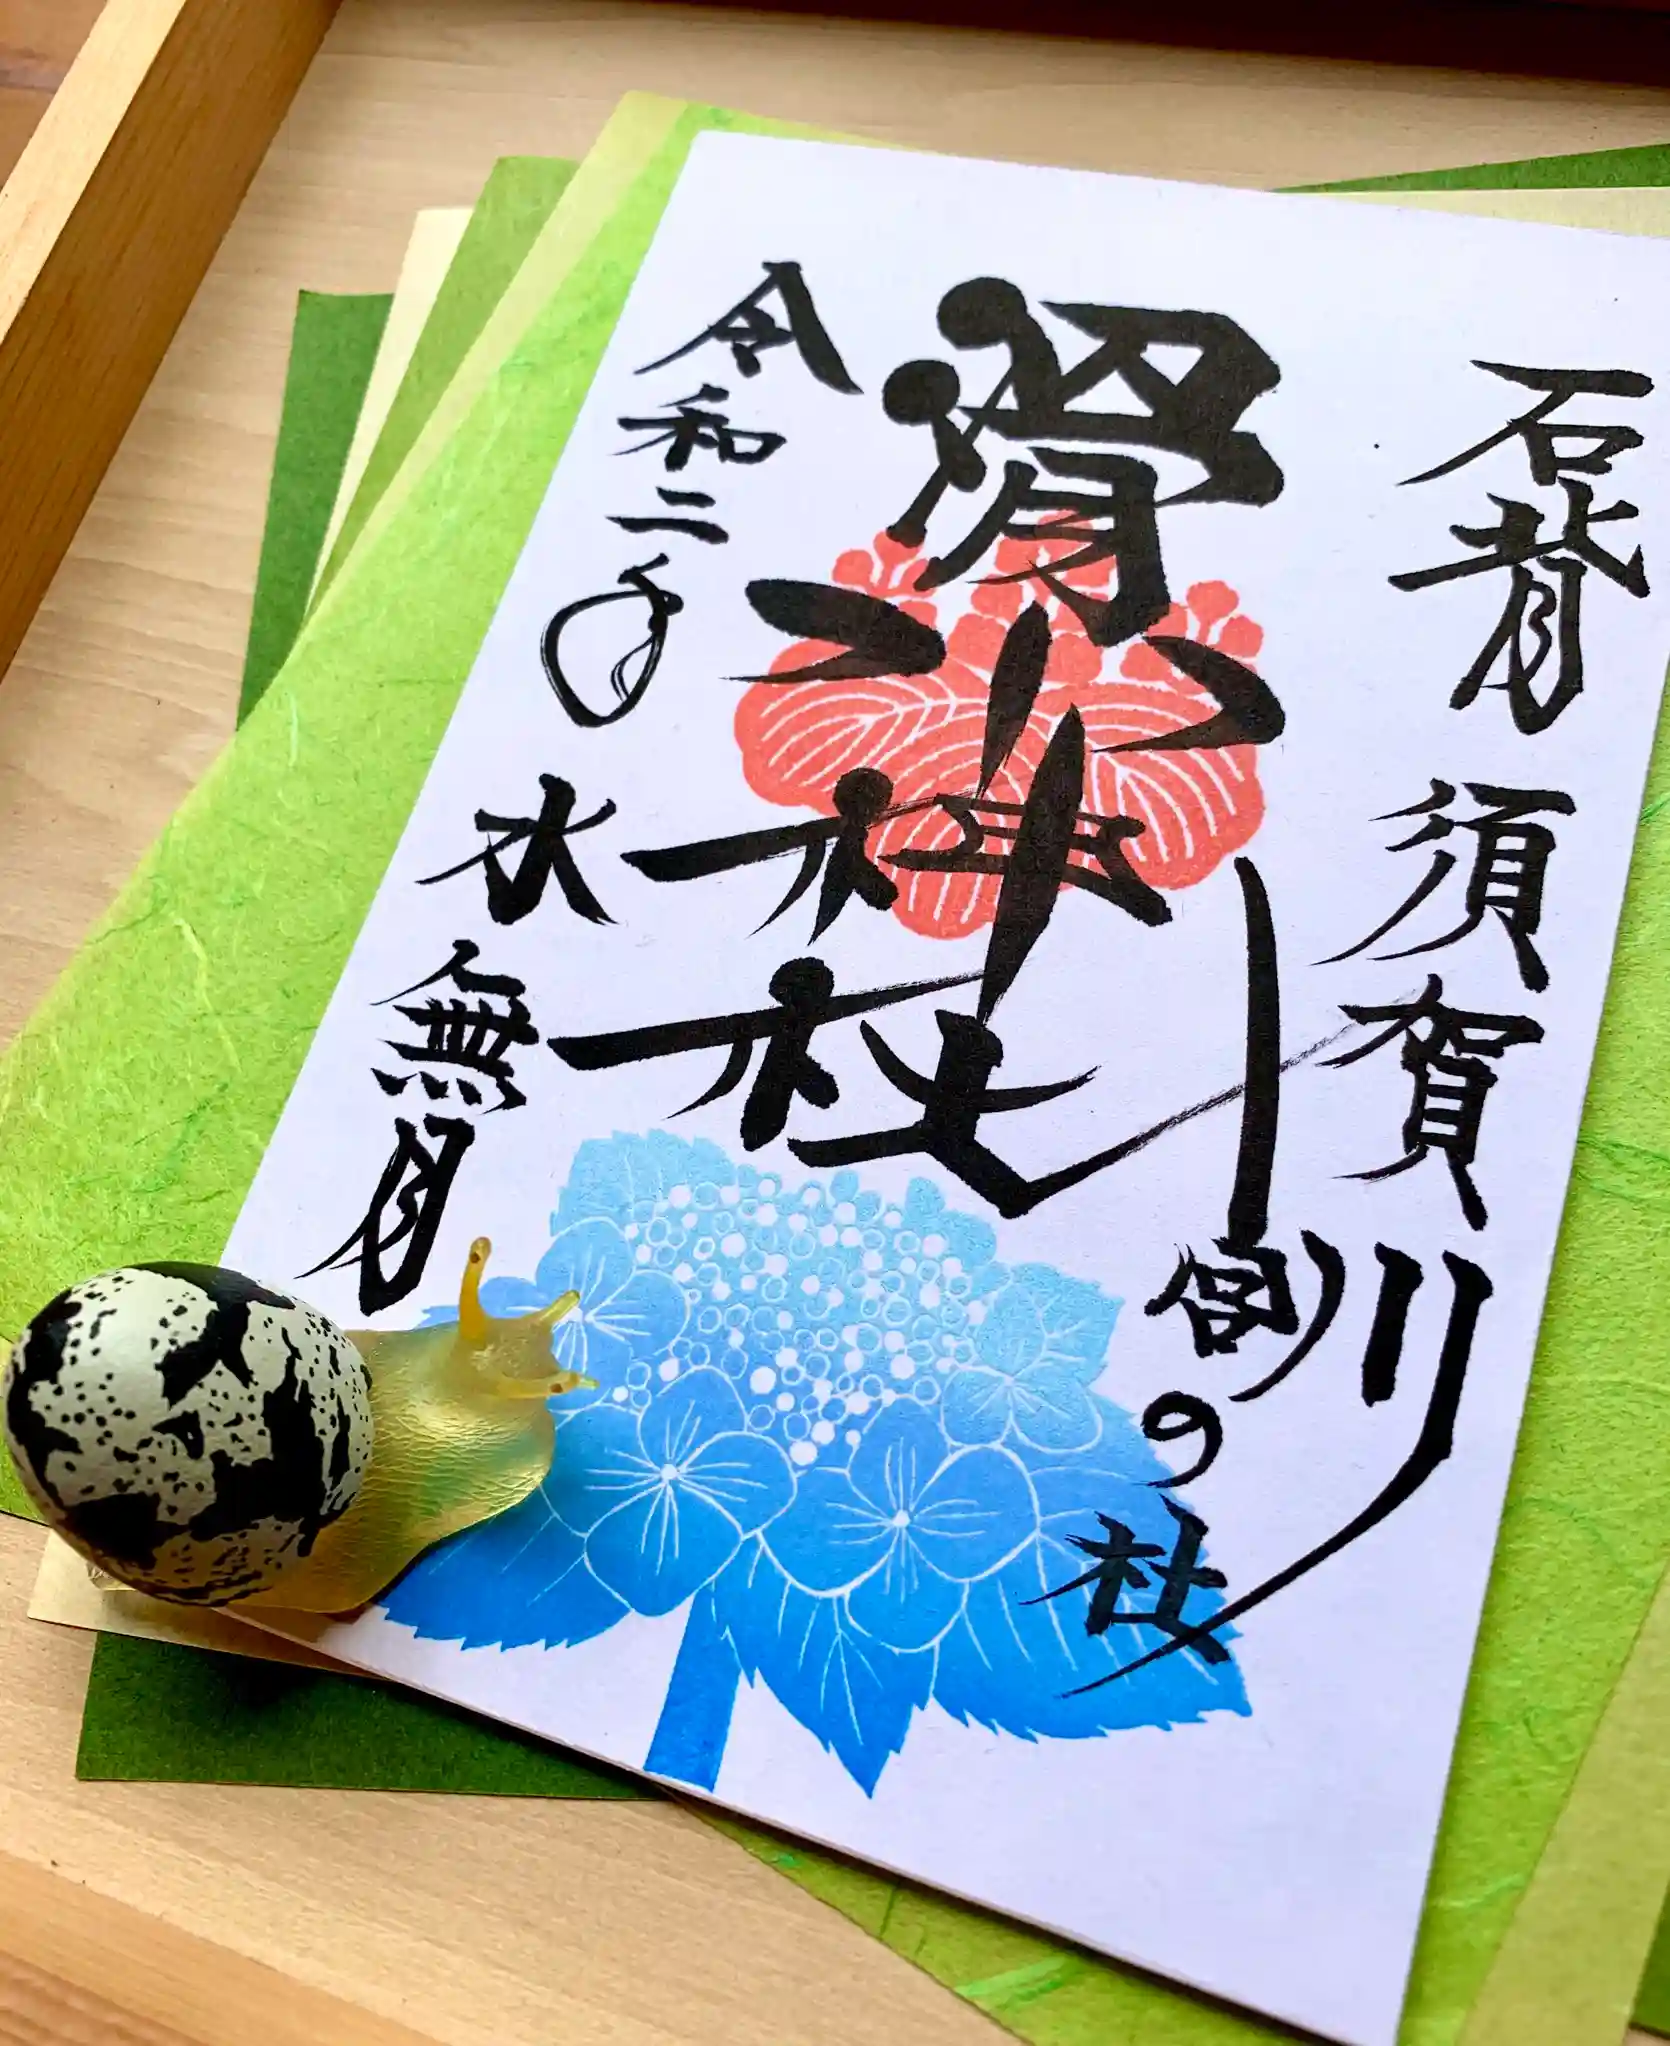 石背 須賀川
の杜
滑川神社
令和二年 水無月